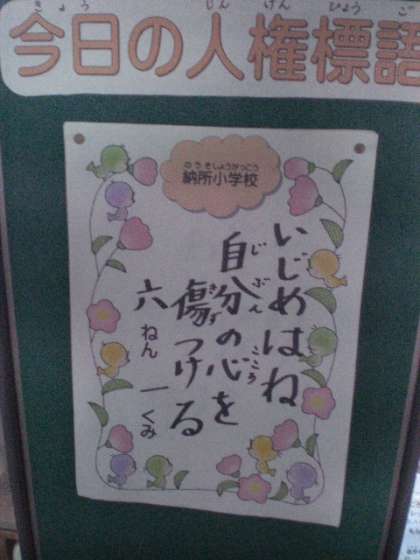 きょう じんけんひょうご
今日の人権標語
のうそしょうがっこう
納所小学校
いじめはね
じぶん こころ
自分の心を
きず
傷つける
六ねん 一くみ